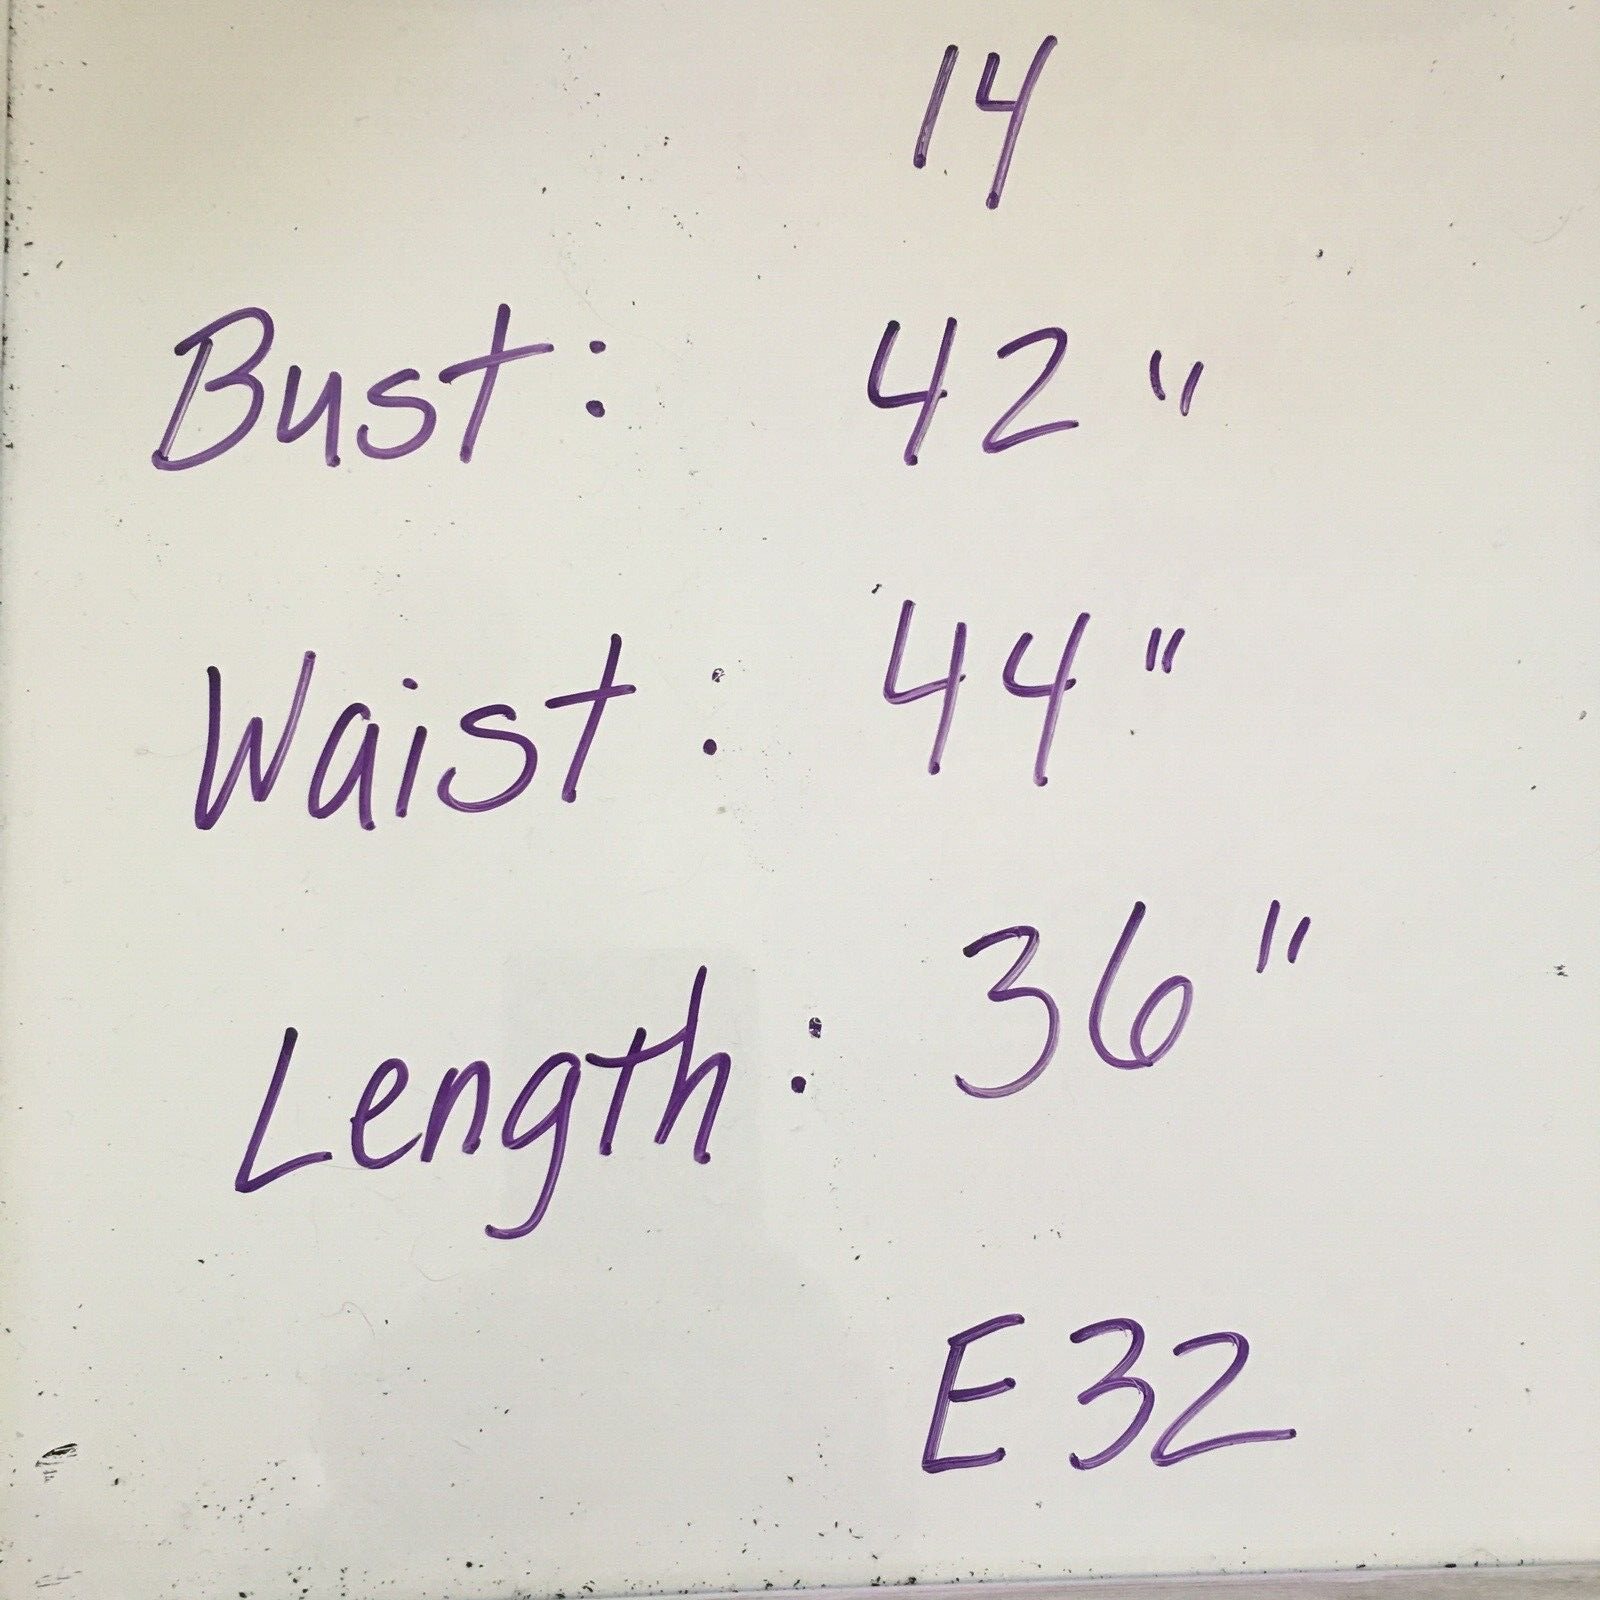 14
Bust: 42"
Waist: 44"
Length: 36"
E32